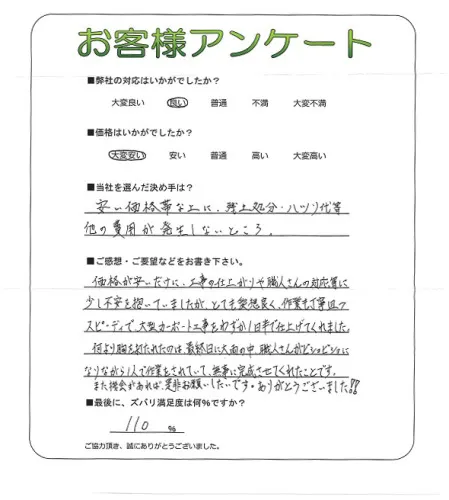 お客様アンケート
■弊社の対応はいかがでしたか？
大変良い 良い 普通 不満 大変不満
■価格はいかがでしたか？
大変安い 安い 普通 高い 大変高い
■当社を選んだ決め手は？
安い価格帯な上に、残土処分・ハツリ代等
他の費用が発生しないところ。
■ご感想・ご要望などをお書き下さい。
価格が安いだけに、工事の仕上がりや職人さんの対応等に
少し不安を抱いていましたが、とても愛想良く、作業も丁寧且つ
スピーディで、大型カーポート工事をわずか1日半で仕上げてくれました。
何より胸を打たれたのは、最終日に大雨の中、職人さんがビショビショに
なりながら1人で作業をされていて、無事に完成させてくれたことです。
また機会があれば、是非お願いしたいです。ありがとうございました!!
■最後に、ズバリ満足度は何%ですか？
110 %
ご協力頂き、誠にありがとうございました。